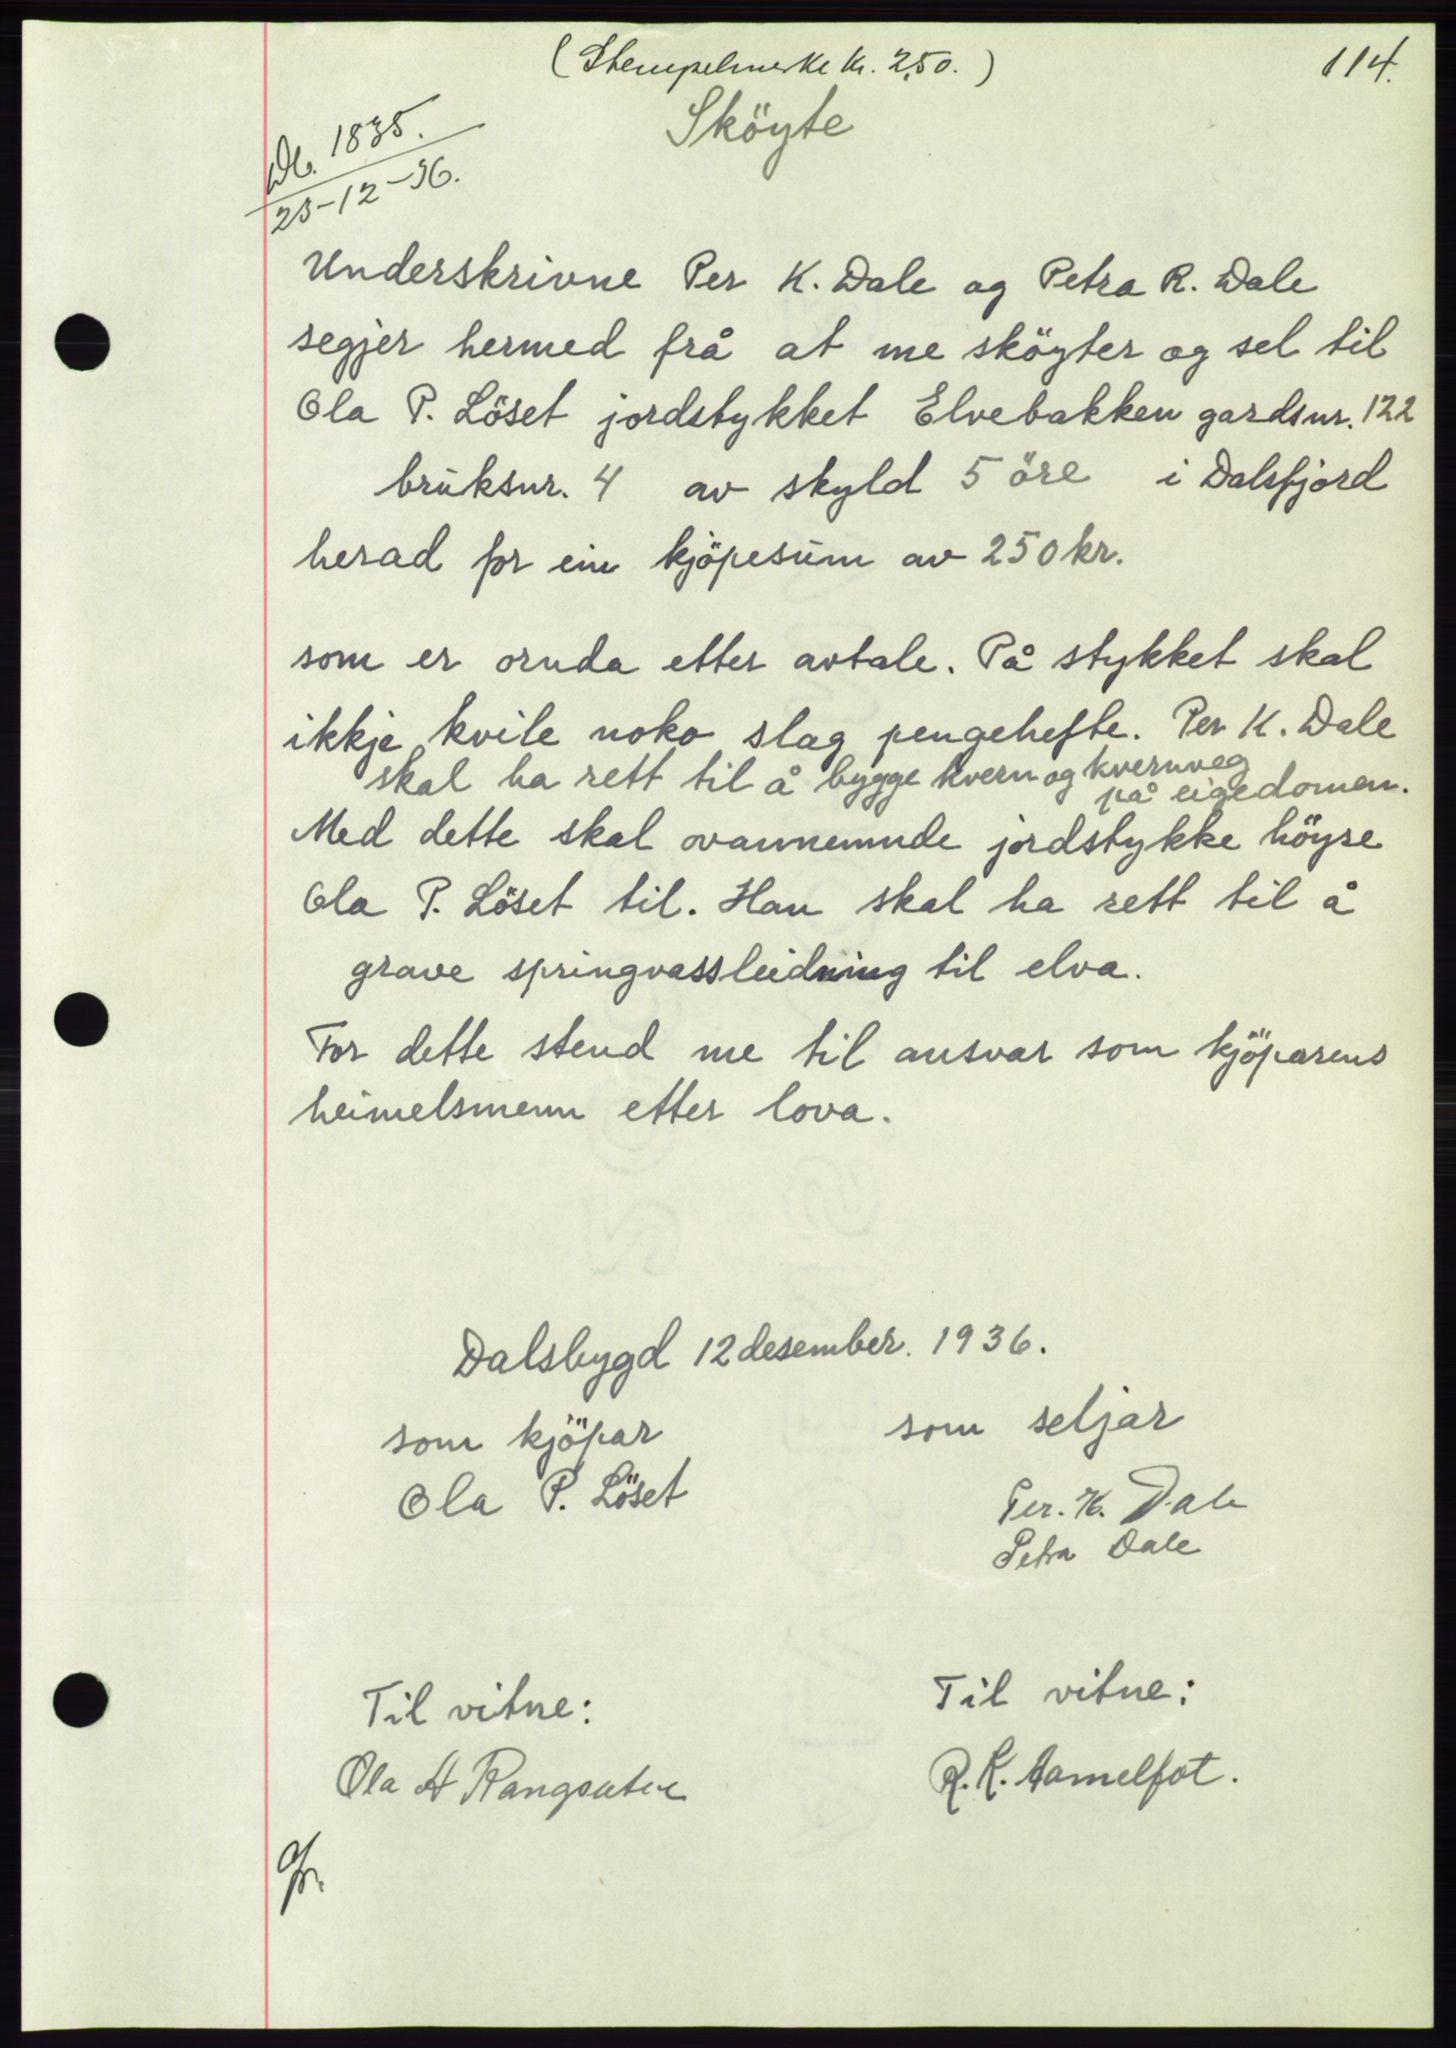 (Stempelmerke kr. 2,50.)
114.
Sköyte
Db. 1835.
23-12-36.
Underskrivne Per K. Dale og Petra R. Dale
segjer hermed frå at me sköyter og sel til
Ola P. Löset jordstykket Elvebakken gardsnr. 122
bruksnr. 4 av skyld 5 öre i Dalsfjord
herad for ein kjöpesum av 250 kr.
som er oruda etter avtale. På stykket skal
ikkje kvile noko slag pengehefte. Per K. Dale
skal ha rett til å bygge kvern og kvernveg
på eigedomen.
Med dette skal ovannemnde jordstykke höyre
Ola P. Löset til. Han skal ha rett til å
grave springvassleidning til elva.
For dette stend me til ansvar som kjöparens
heimelsmenn etter lova.
Dalsbygd 12 desember. 1936.
som kjöpar
Ola P. Löset
som seljar
Per. K. Dale
Petra Dale
Til vitne:
Ola A Rangsæter
Til vitne:
R. K. Aamelfot.